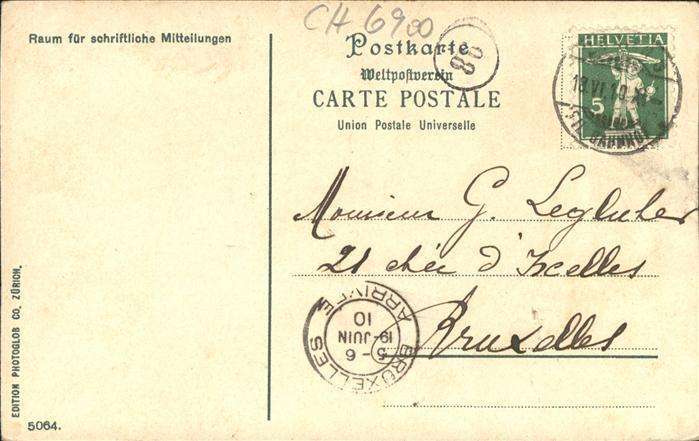 CH 6900
Raum für schriftliche Mitteilungen
Postkarte
80
Weltpostverein
CARTE POSTALE
Union Postale Universelle
HELVETIA
5
18.VI.10
BAHNHOF
Monsieur G.
21 chée d'Ixelles
Bruxelles
BRUXELLES
5-6
19 JUIN
10
ARRIVEE
EDITION PHOTOGLOB CO, ZÜRICH.
5064.